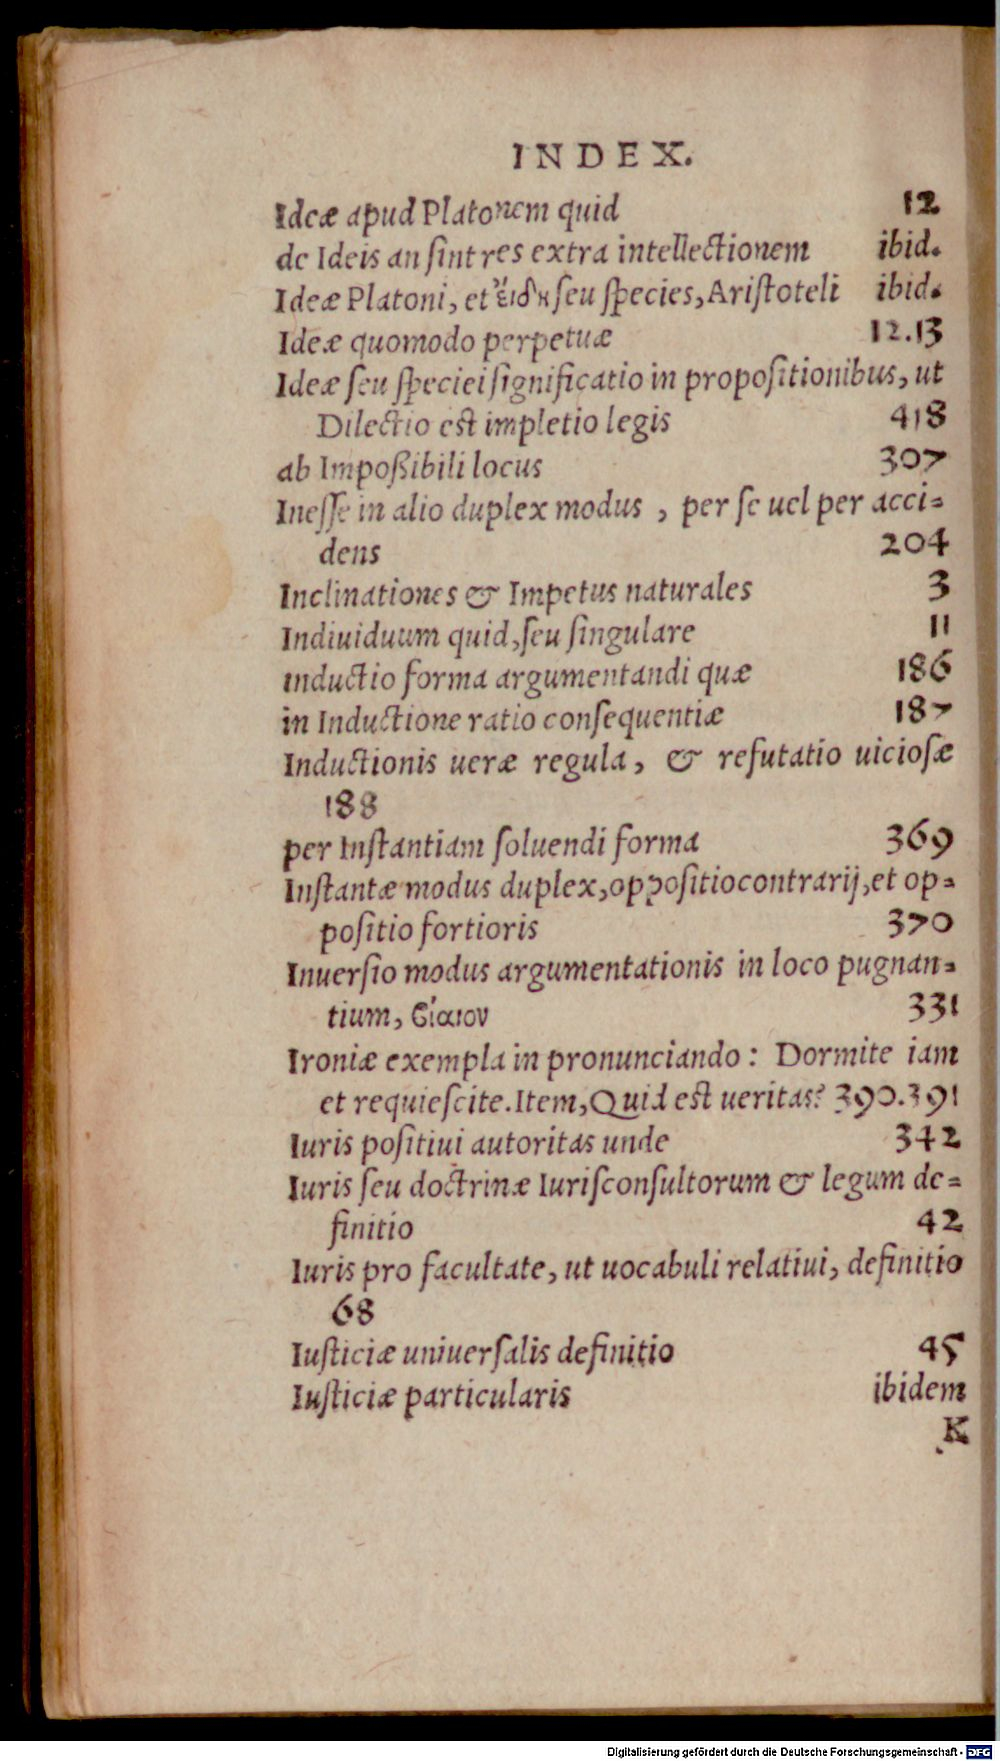 INDEX.
Ideæ apud Platonem quid 12
de Ideis an ſint res extra intellectionem ibid.
Ideæ Platoni, et εἴδη ſeu ſpecies, Ariſtoteli ibid.
Ideæ quomodo perpetuæ 12.13
Ideæ ſeu ſpeciei ſignificatio in propoſitionibus, ut
Dilectio eſt impletio legis 418
ab Impoßibili locus 307
Ineſſe in alio duplex modus , per ſe uel per acci-
dens 204
Inclinationes & Impetus naturales 3
Indiuiduum quid, ſeu ſingulare 11
inductio forma argumentandi quæ 186
in Inductione ratio conſequentiæ 187
Inductionis ueræ regula, & refutatio uicioſæ
188
per Inſtantiam ſoluendi forma 369
Inſtantæ modus duplex, oppoſitio contrarij, et op-
poſitio fortioris 370
Inuerſio modus argumentationis in loco pugnan-
tium, βίαιον 331
Ironiæ exempla in pronunciando: Dormite iam
et requieſcite. Item, Quid eſt ueritas? 390.391
Iuris poſitiui autoritas unde 342
Iuris ſeu doctrinæ Iuriſconſultorum & legum de-
finitio 42
Iuris pro facultate, ut uocabuli relatiui, definitio
68
Iuſticiæ uniuerſalis definitio 45
Iuſticiæ particularis ibidem
K
Digitalisierung gefördert durch die Deutsche Forschungsgemeinschaft - DFG